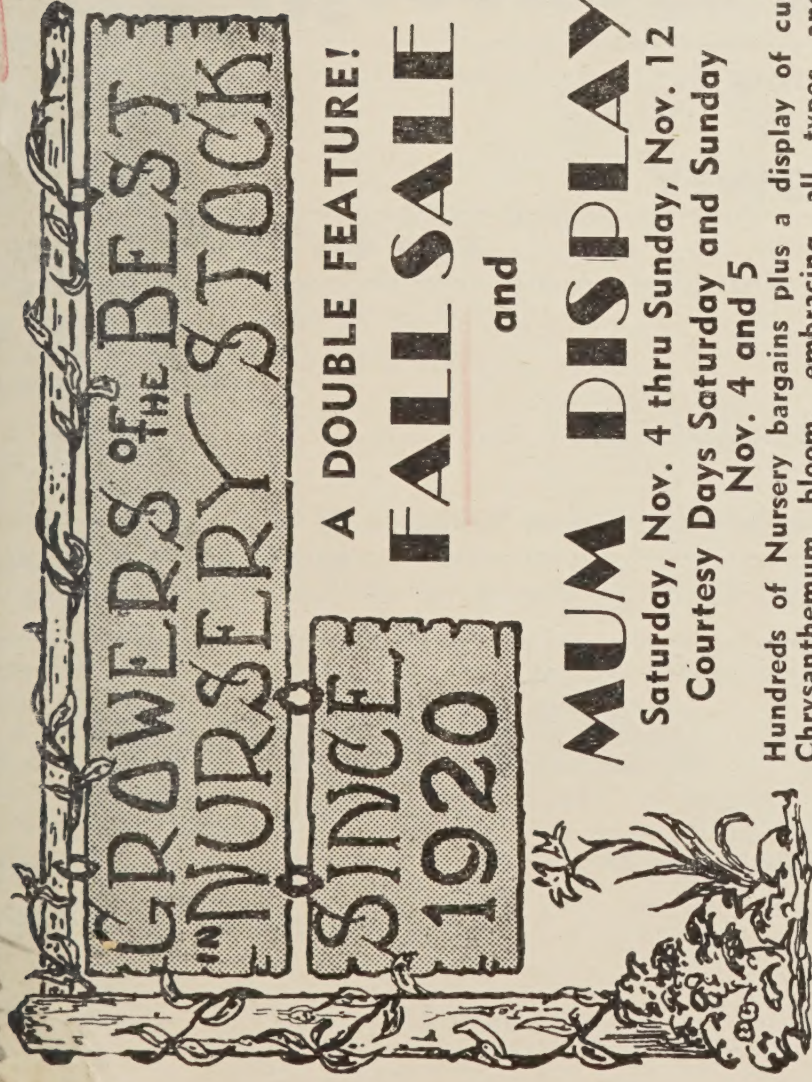 GROWERS OF THE BEST
IN NURSERY STOCK
SINCE
1920
A DOUBLE FEATURE!
FALL SALE
and
MUM DISPLAY
Saturday, Nov. 4 thru Sunday, Nov. 12
Courtesy Days Saturday and Sunday
Nov. 4 and 5
Hundreds of Nursery bargains plus a display of cu
Chrysanthemum bloom embracing all types and